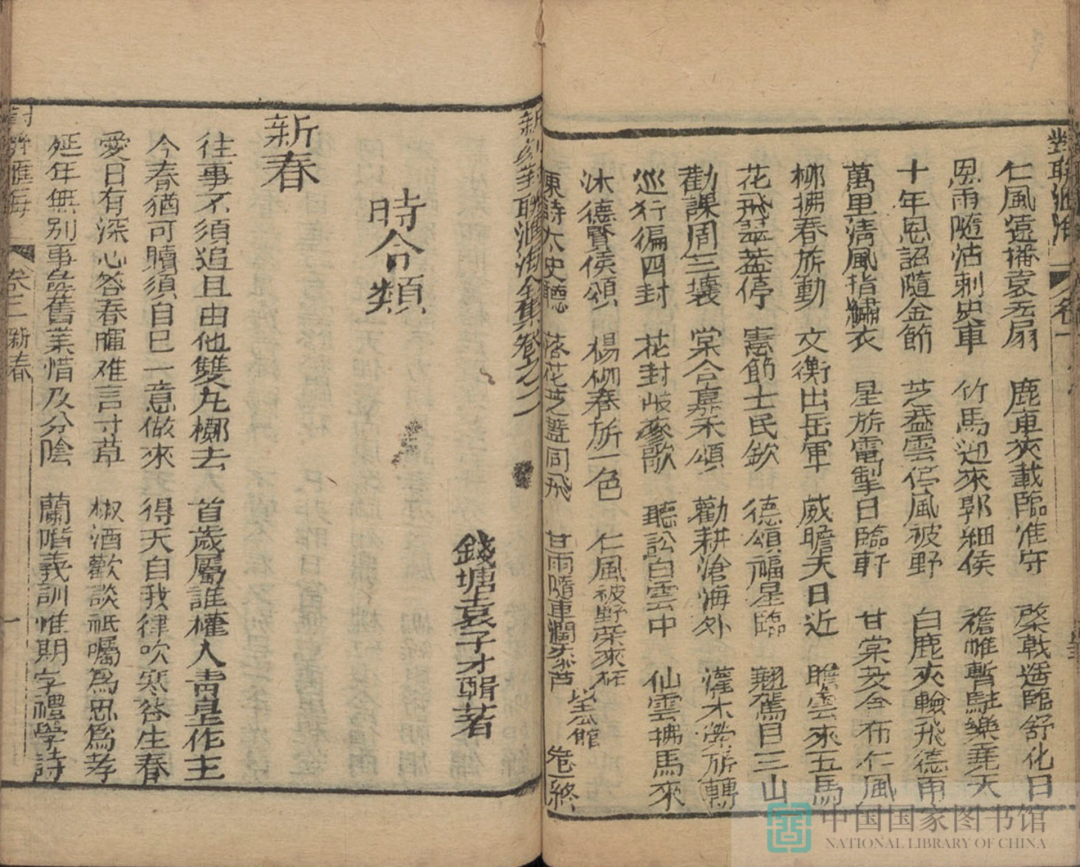 對聯滙海 卷一
仁風遠播袁宏扇 鹿車夾載臨淮守 棨戟遙臨舒化日
恩雨隨沾刺史車 竹馬迎來郭細侯 襜帷暫駐樂堯天
十年恩詔隨金節 芝蓋雲停風被野 白鹿夾輪飛德雨
萬里清風指繡衣 星旂電掣日臨軒 甘棠及今布仁風
柳拂春旂動 文衡出岳軍 威瞻天日近 瞻雲來五馬
花飛翠蓋停 憲節士民欽 德頌福星臨 翹駕目三山
勸課周三壤 棠合嘉禾頌 勸耕滄海外 灌木旁旂轉
巡行徧四封 花封岐麥歌 聽訟白雲中 仙雲拂馬來
沐德賢侯頌 楊柳春旂一色 仁風被野菜來
東詩太史聽 落花芝蓋同飛 甘雨隨車 公館 卷一終
新刻對聯滙海全集卷之二
時令類
錢塘袁子才輯著
新春
往事不須追且由他雙丸擲去 首歲屬誰權人青皇作主
今春猶可贖須自巳一意做來 得天自我律吹寒谷生春
愛日有深心答春暉难言寸草 椒酒歡談祇囑為思為孝
延年無別事彝舊業惜及分陰 蘭階義訓惟期字禮學詩
對聯滙海 卷三 新春 一
中国国家图书馆
NATIONAL LIBRARY OF CHINA